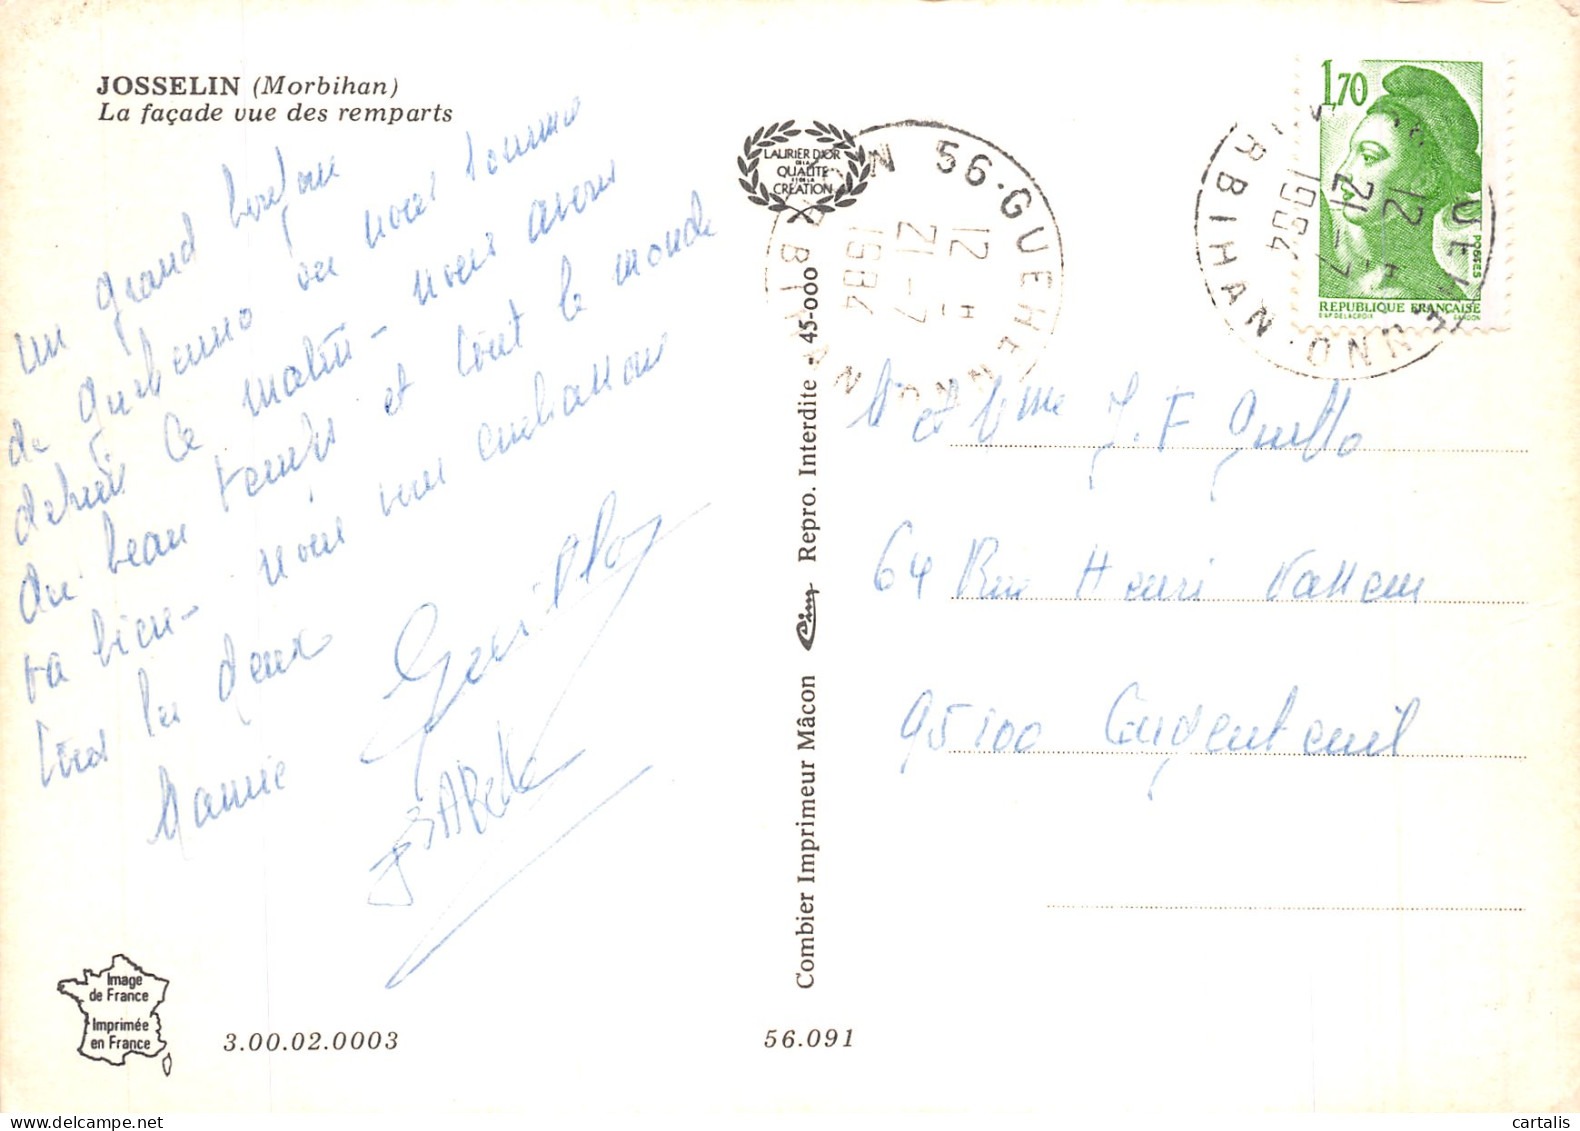 JOSSELIN (Morbihan)
La façade vue des remparts
un grand bonjour
de Guehenno ou nous sommes
depuis ce matin - nous avons
du beau temps et tout le monde
va bien - nous vous embrassons
tous les deux
Mamie
Isabelle
LAURIER D'OR
DE LA
QUALITÉ
ET DE LA
CRÉATION
56-GUEHENNO
12 H
21-7
1984
MORBIHAN
Combier Imprimeur Mâcon Cim Repro. Interdite - 45-000
1,70
POSTES
REPUBLIQUE FRANÇAISE
D'AP. DELACROIX GANDON
56-GUEHENNO
12 H
21-7
1984
MORBIHAN
Mr et Mme J. F Guillo
64 Rue Henri
95100 Argenteuil
Image
de France
Imprimée
en France
3.00.02.0003
56.091
cartalis